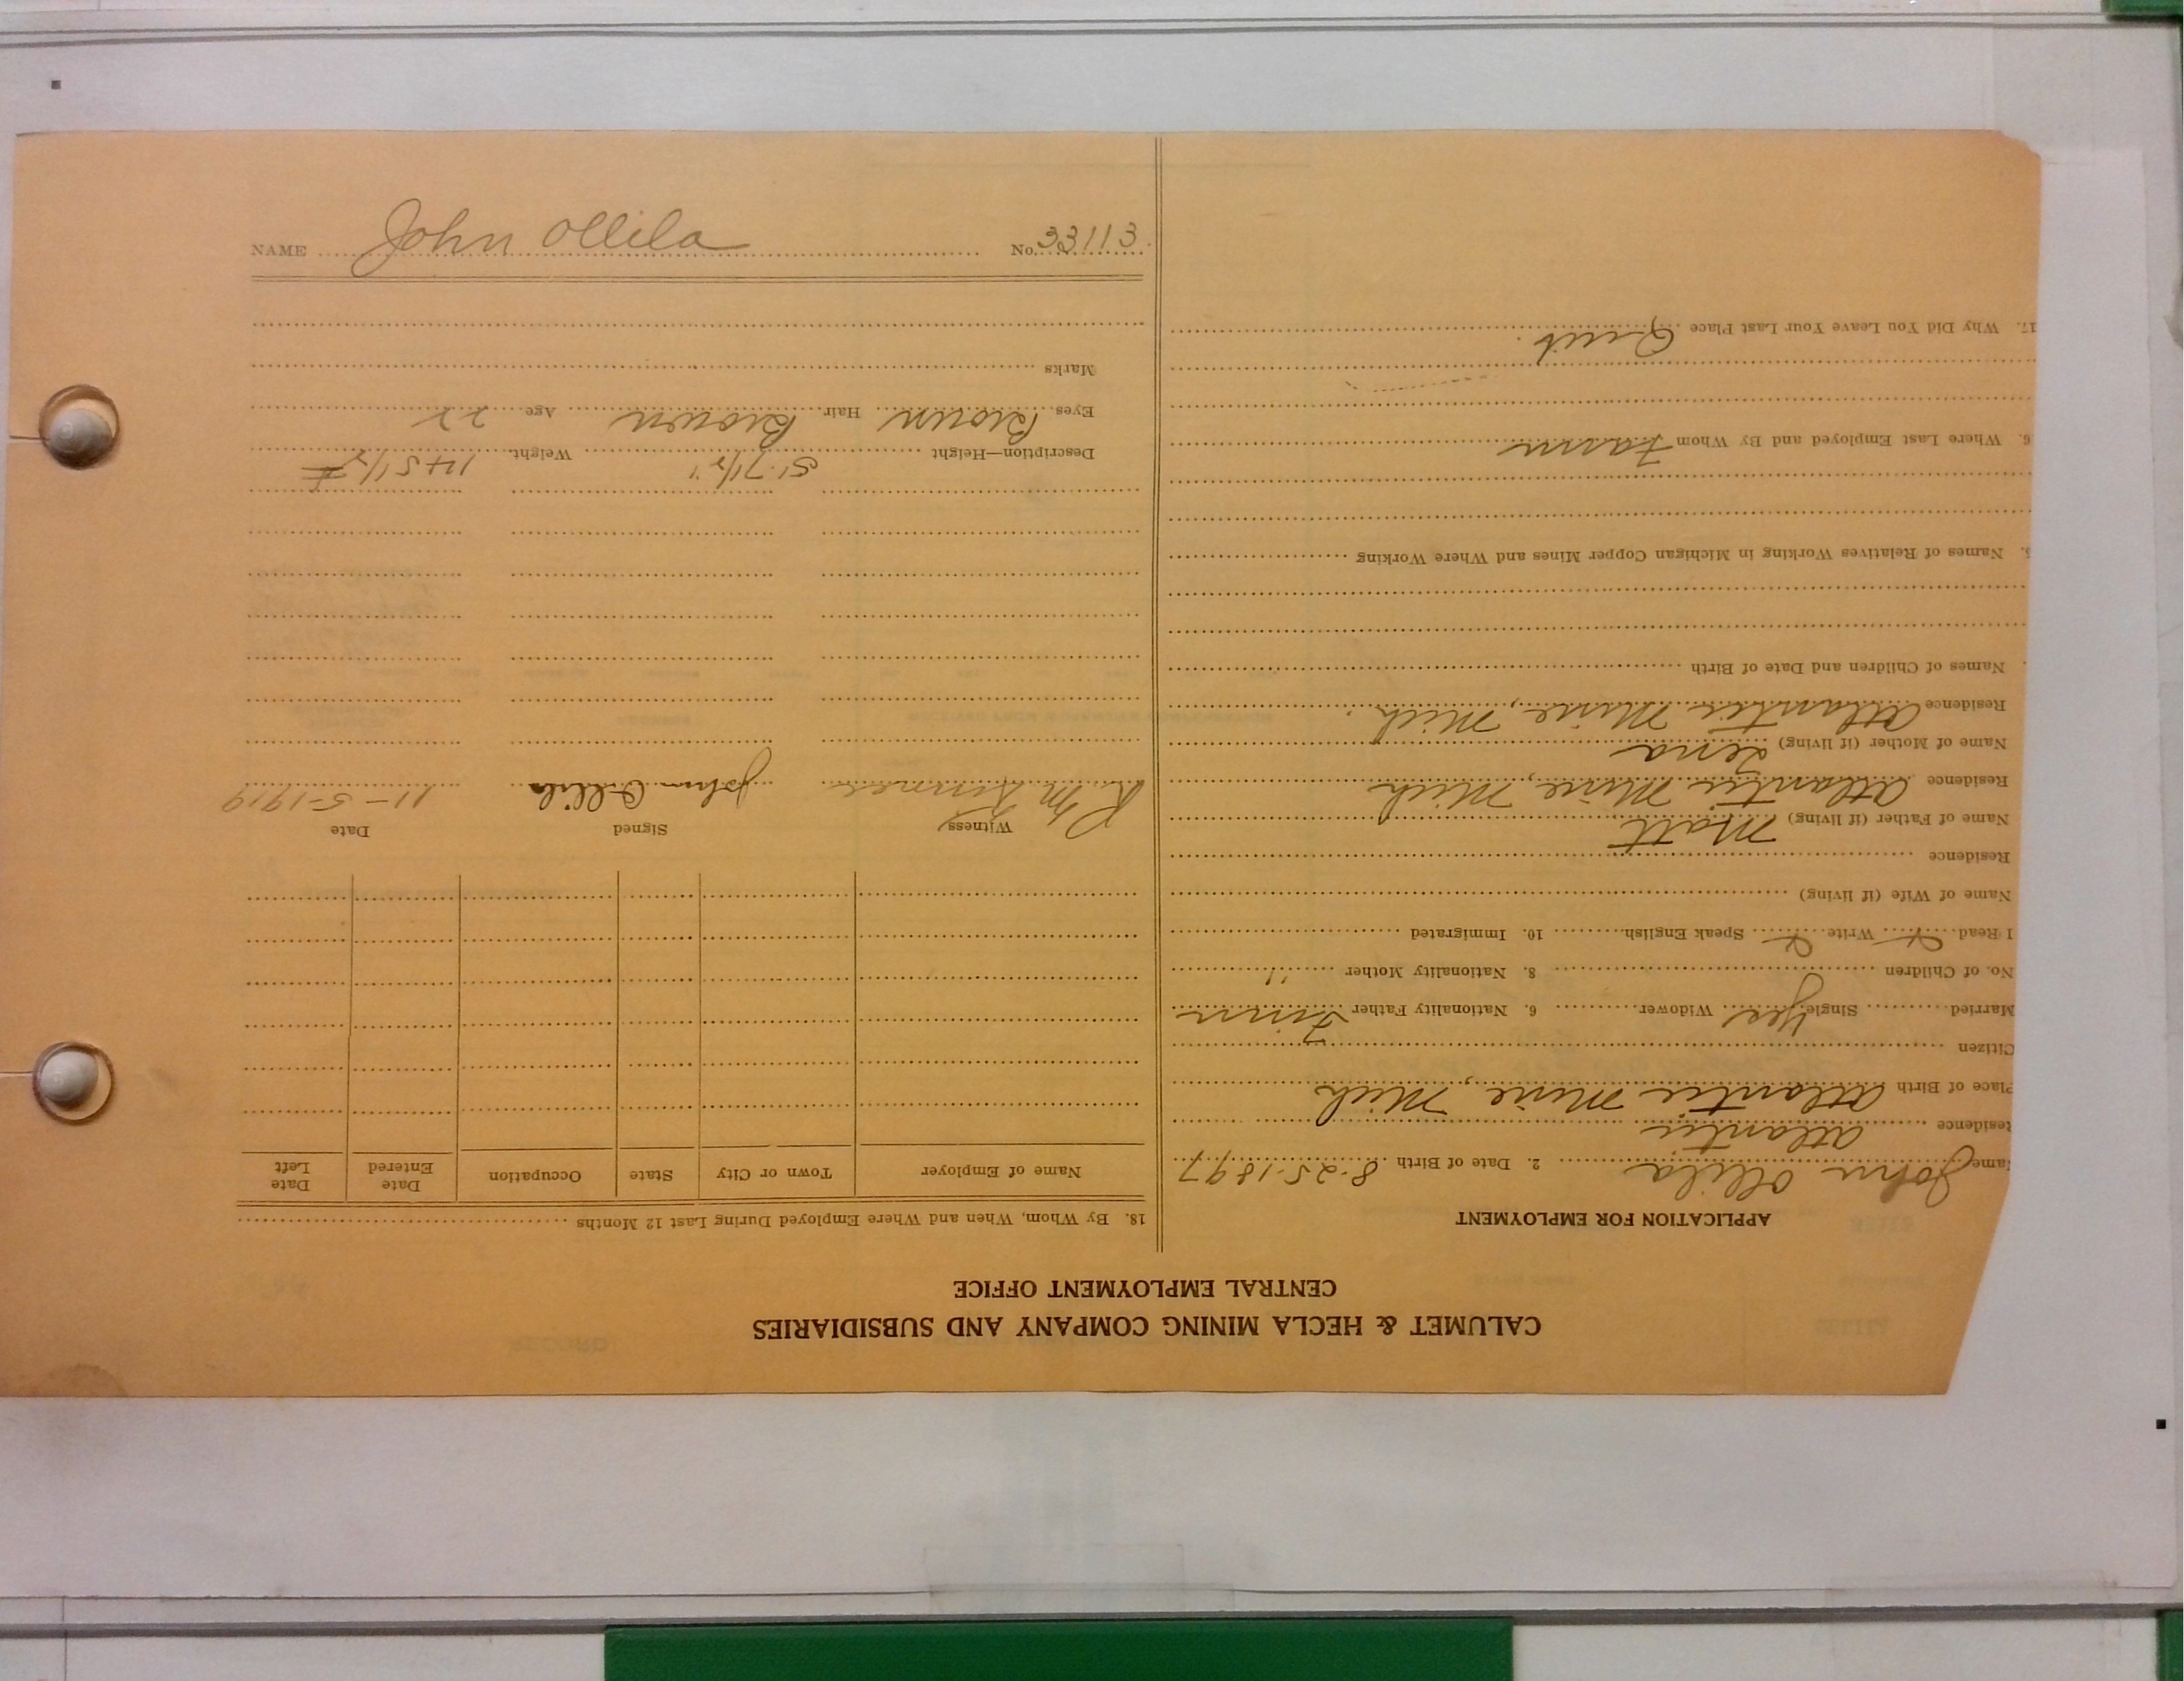 CALUMET & HECLA MINING COMPANY AND SUBSIDIARIES
CENTRAL EMPLOYMENT OFFICE
APPLICATION FOR EMPLOYMENT
ame John Ollila 2. Date of Birth 8-25-1897
Residence Atlantic
Place of Birth Atlantic Mine, Mich
Citizen
Married Single Yes Widower 6. Nationality Father Finn
No. of Children 8. Nationality Mother "
Read Write Speak English 10. Immigrated
Name of Wife (if living)
Residence
Name of Father (if living) Matt
Residence Atlantic Mine, Mich
Name of Mother (if living) Lena
Residence Atlantic Mine, Mich.
Names of Children and Date of Birth
5. Names of Relatives Working in Michigan Copper Mines and Where Working
6. Where Last Employed and By Whom Farm
17. Why Did You Leave Your Last Place Quit.
18. By Whom, When and Where Employed During Last 12 Months
Name of Employer Town or City State Occupation Date Entered Date Left
Witness Signed Date
R. M. John Ollila 11-5-1919
Description—Height 5' 7 1/2" Weight 145 1/2 #
Eyes Brown Hair Brown Age 22
Marks
NAME John Ollila No. 33113.